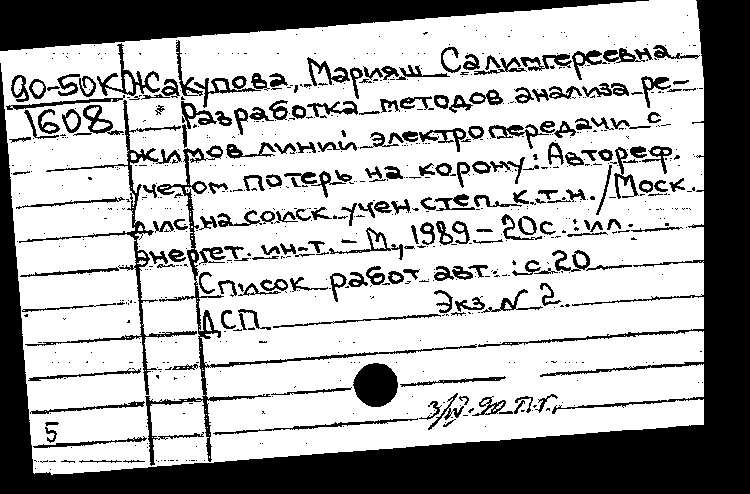 90-50К Жакупова, Марияш Салимгереевна.
1608 * Разработка методов анализа ре-
жимов линий электропередачи с
учетом потерь на корону: Автореф.
дис. на соиск. учен. степ. к.т.н. / Моск.
энергет. ин-т. - М., 1989 - 20с. : ил.
Список работ авт. : с. 20
ДСП Экз. N 2
3/IV-90 П.Г.
5